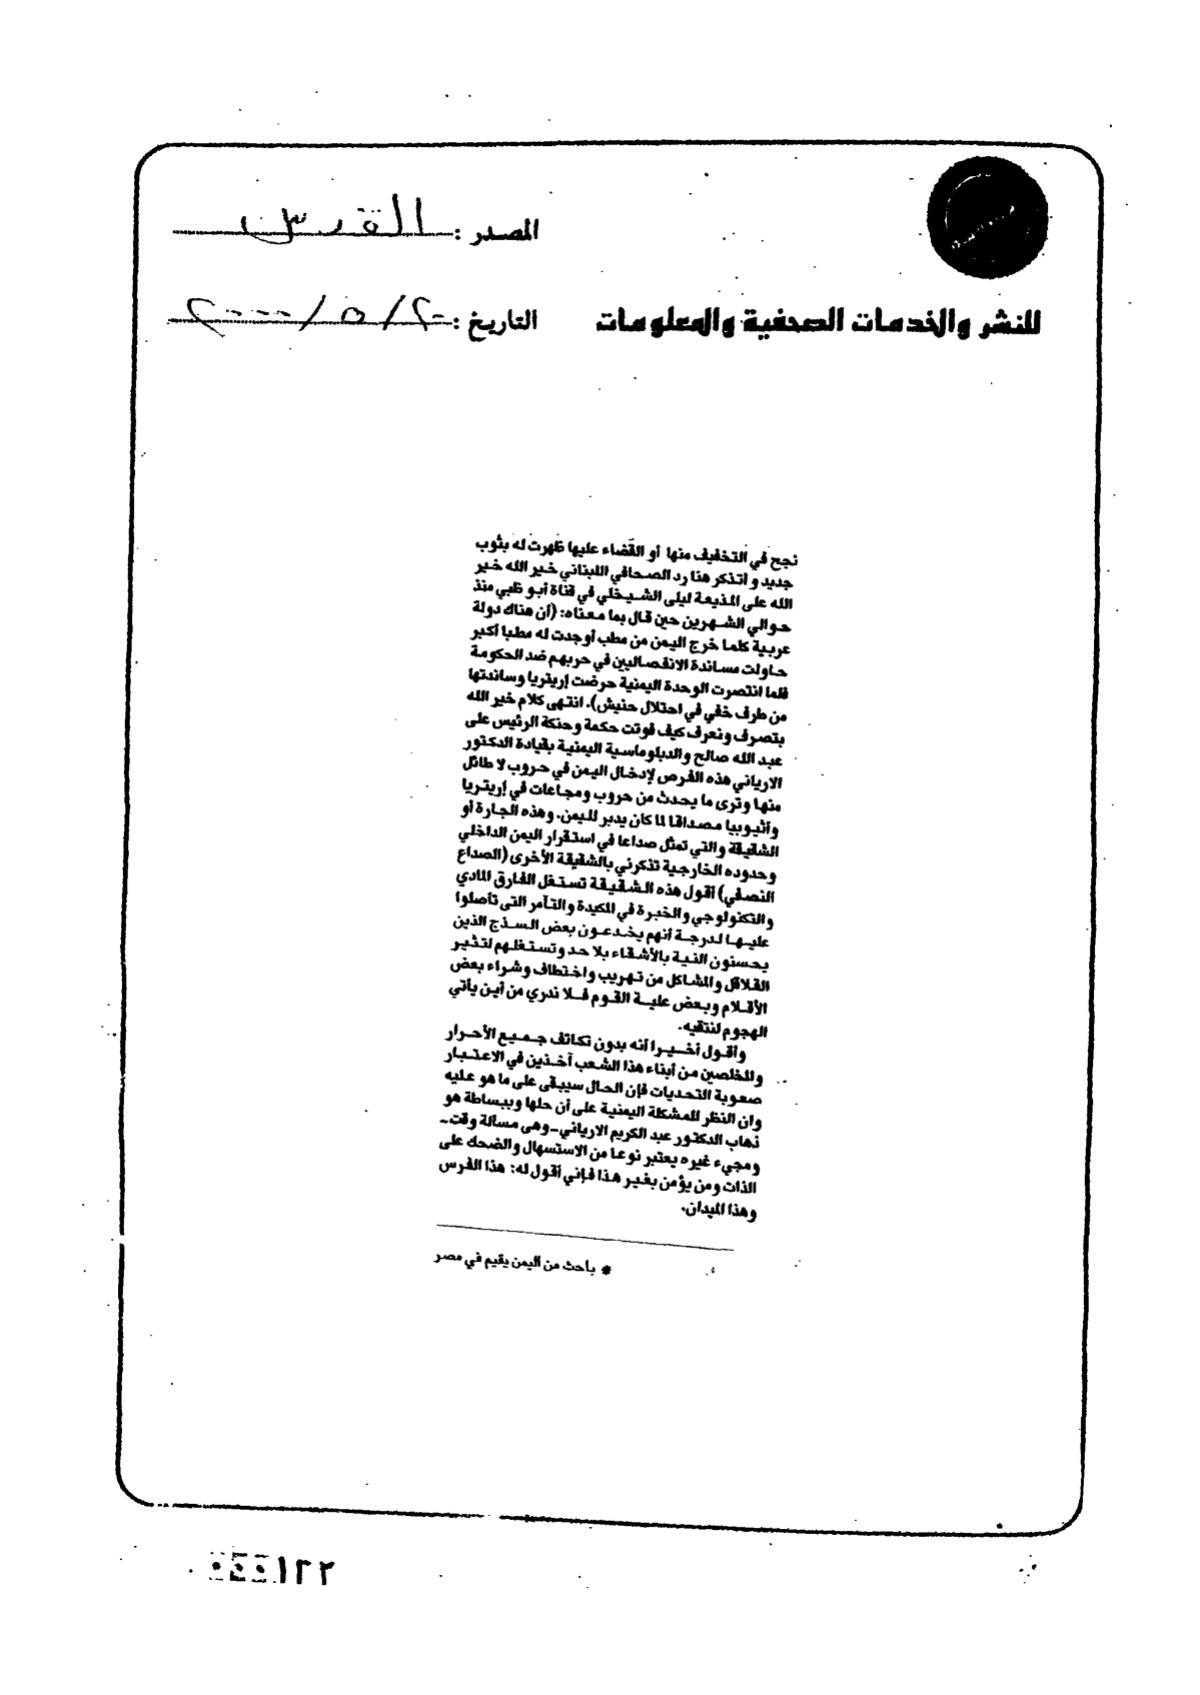 المصدر : القدس
للنشر والخدمات الصحفية والمعلومات
التاريخ : ٢٠ / ٥ / ٢٠٠٠
نجح في التخفيف منها أو القضاء عليها ظهرت له بثوب
جديد و أتذكر هنا رد الصحافي اللبناني خير الله خير
الله على المذيعة ليلى الشيخلي في قناة أبو ظبي منذ
حوالي الشهرين حين قال بما معناه: (أن هناك دولة
عربية كلما خرج اليمن من مطب أوجدت له مطبا أكبر
حاولت مساندة الانفصاليين في حربهم ضد الحكومة
فلما انتصرت الوحدة اليمنية حرضت إريتريا وساندتها
من طرف خفي في احتلال حنيش). انتهى كلام خير الله
بتصرف ونعرف كيف فوتت حكمة وحنكة الرئيس على
عبد الله صالح والدبلوماسية اليمنية بقيادة الدكتور
الارياني هذه الفرص لإدخال اليمن في حروب لا طائل
منها وترى ما يحدث من حروب ومجاعات في إريتريا
وأثيوبيا مصداقا لما كان يدبر لليمن. وهذه الجارة أو
الشقيقة والتي تمثل صداعا في استقرار اليمن الداخلي
وحدوده الخارجية تذكرني بالشقيقة الأخرى (الصداع
النصفي) أقول هذه الشقيقة تستغل الفارق المادي
والتكنولوجي والخبرة في المكيدة والتآمر التى تأصلوا
عليها لدرجة أنهم يخدعون بعض السذج الذين
يحسنون النية بالأشقاء بلا حد وتستغلهم لتثير
القلاقل والمشاكل من تهريب واختطاف وشراء بعض
الأقلام وبعض علية القوم فلا ندري من أين يأتي
الهجوم لنتقيه.
وأقول أخيرا أنه بدون تكاتف جميع الأحرار
والمخلصين من أبناء هذا الشعب آخذين في الاعتبار
صعوبة التحديات فإن الحال سيبقى على ما هو عليه
وان النظر للمشكلة اليمنية على أن حلها وببساطة هو
ذهاب الدكتور عبد الكريم الارياني -وهى مسألة وقت-
ومجيء غيره يعتبر نوعا من الاستسهال والضحك على
الذات ومن يؤمن بغير هذا فإني أقول له: هذا الفرس
وهذا الميدان.
* باحث من اليمن يقيم في مصر